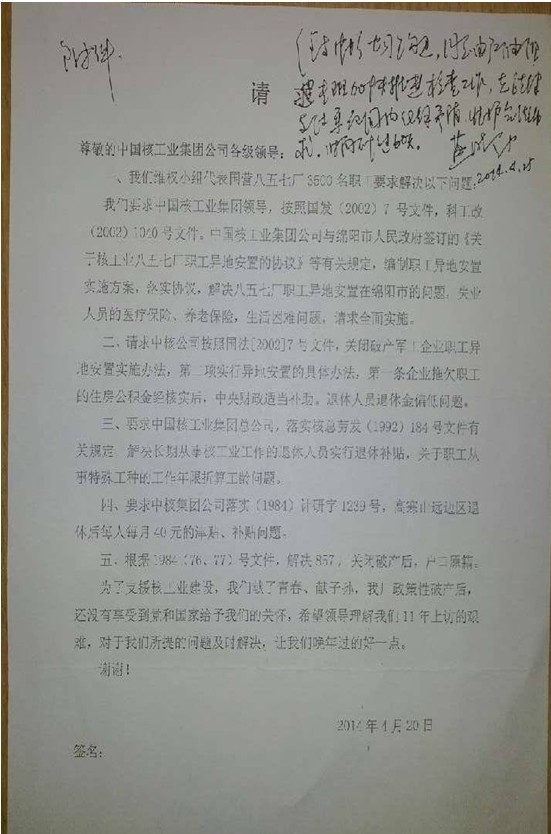 请
2014.4.25
尊敬的中国核工业集团公司各级领导:
一、我们维权小组代表国营八五七厂3500名职工要求解决以下问题:
我们要求中国核工业集团领导，按照国发（2002）7号文件，科工改
（2002）1040号文件。中国核工业集团公司与绵阳市人民政府签订的《关
于核工业八五七厂职工异地安置的协议》等有关规定，编制职工异地安置
实施方案，落实协议，解决八五七厂职工异地安置在绵阳市的问题。失业
人员的医疗保险、养老保险，生活困难问题，请求全面实施。
二、请求中核公司按照国法[2002]7号文件，关闭破产军工企业职工异
地安置实施办法，第二项实行异地安置的具体办法，第一条企业拖欠职工
的住房公积金经核实后，中央财政适当补助。退休人员退休金偏低问题。
三、要求中国核工业集团总公司，落实核总劳发（1992）184号文件有
关规定，解决长期从事核工业工作的退休人员实行退休补贴，关于职工从
事特殊工种的工作年限折算工龄问题。
四、要求中核集团公司落实（1984）计研字1239号，高寒山远边区退
休后每人每月40元的津贴、补贴问题。
五、根据1984（76、77）号文件，解决857厂关闭破产后，户口原籍。
为了支援核工业建设，我们献了青春、献子孙，我厂政策性破产后，
还没有享受到党和国家给予我们的关怀，希望领导理解我们11年上访的艰
难，对于我们所提的问题及时解决，让我们晚年过的好一点。
谢谢！
2014年4月20日
签名: